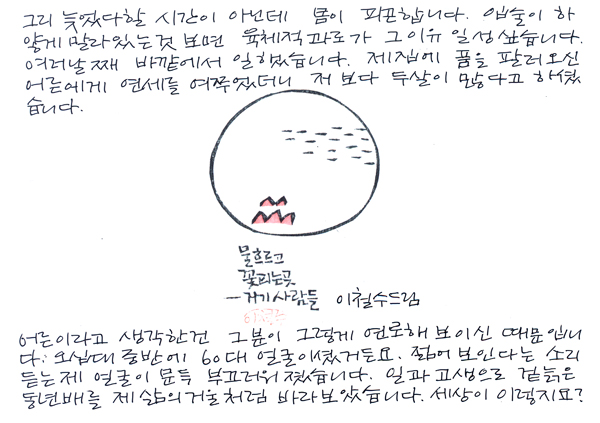 그리 늦었다할 시간이 아닌데 몸이 피곤합니다. 입술이 하
얗게 말라있는것 보면 육체적과로가 그이유 일성 싶습니다.
여러날째 바깥에서 일했습니다. 제집에 품을 팔러오신
어른에게 연세를 여쭈었더니 저 보다 두살이 많다고 하셨
습니다.
물흐르고
꽃피는곳
—거기사람들 이철수드림
어른이라고 생각한건 그분이 그렇게 연로해 보이신 때문입니
다. 오십대 중반에 60대 얼굴이셨거든요. 젊어 보인다는 소리
듣는 제 얼굴이 문득 부끄러워졌습니다. 일과 고생으로 겉늙은
동년배를 제 삶의 거울처럼 바라보았습니다. 세상이 이렇지요?